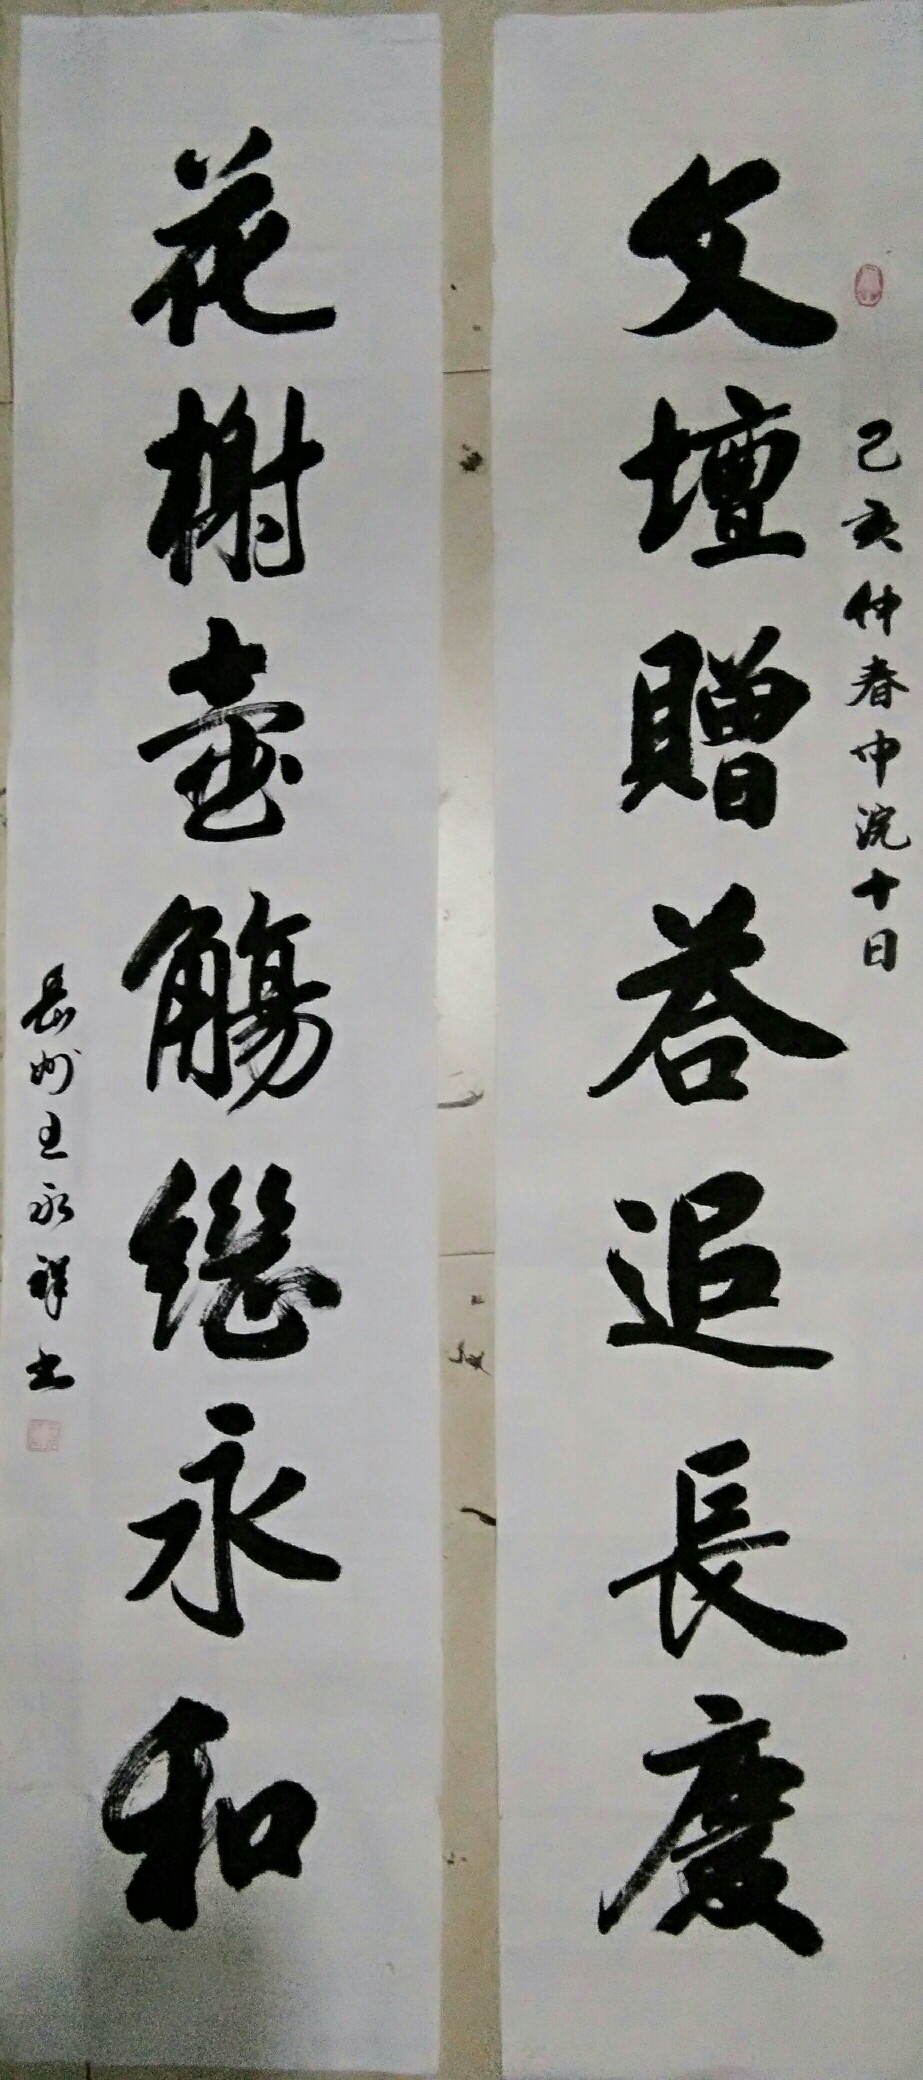 己亥仲春中浣十日
文壇贈答追長慶
花榭壺觴繼永和
岳州王永祥书